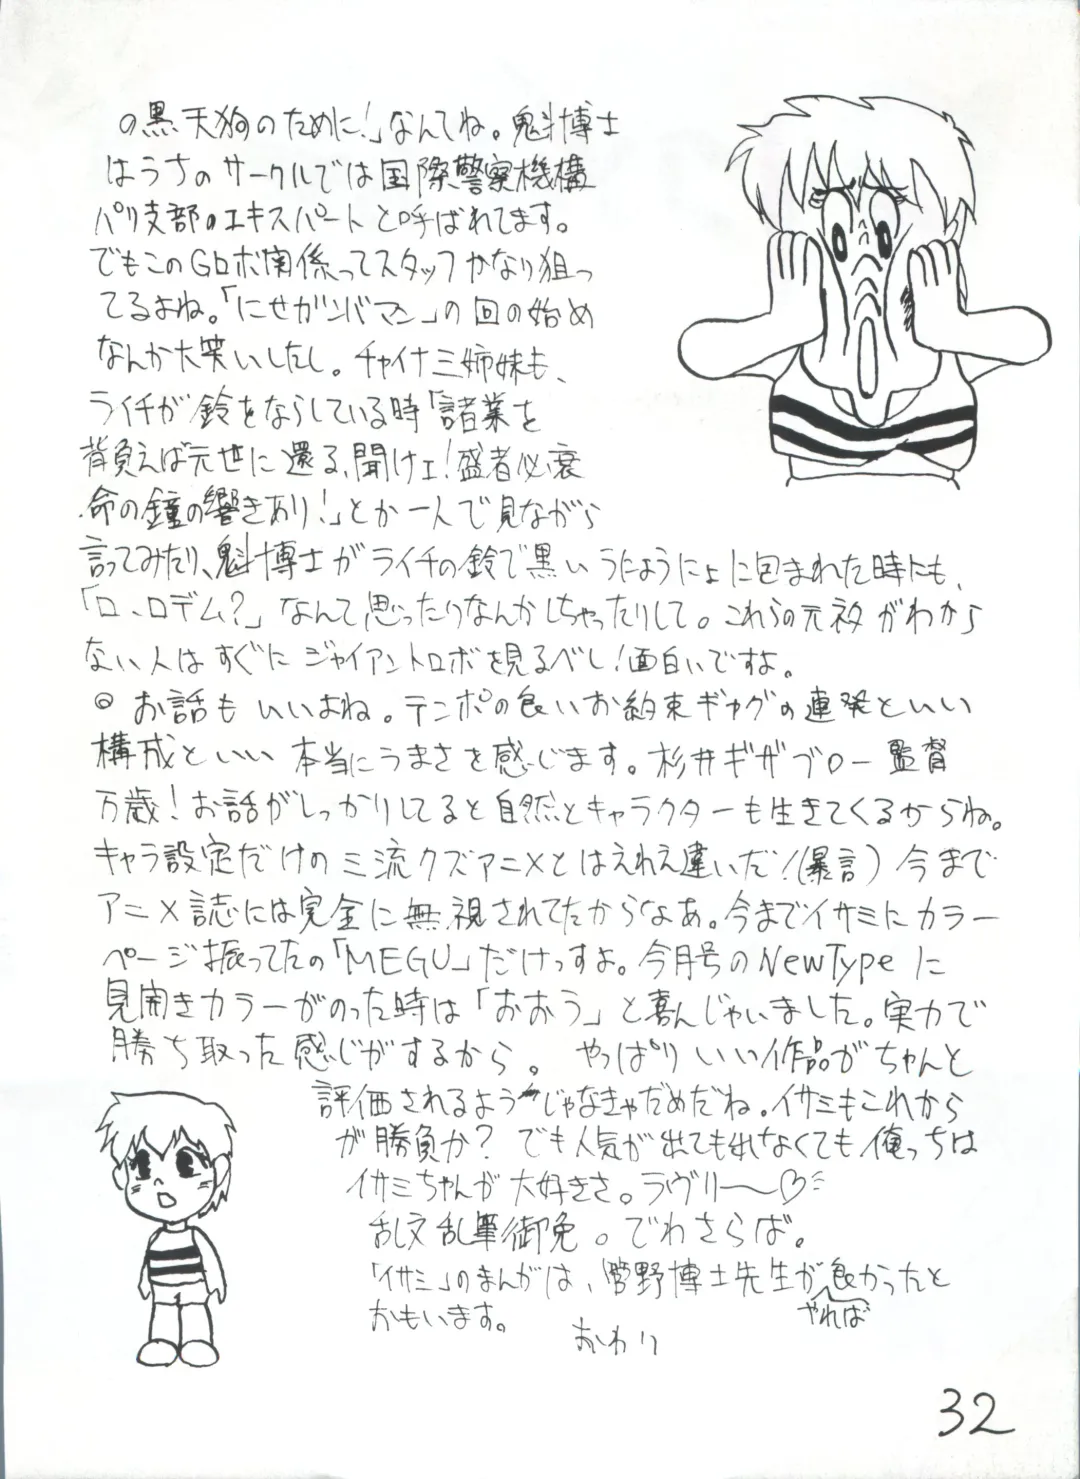 の黒天狗のために!」なんてね。魁博士
はうちのサークルでは国際警察機構
パリ支部のエキスパートと呼ばれてます。
でもこのGロボ関係ってスタッフかなり狙っ
てるよね。「にせガンバマン」の回の始め
なんか大笑いしたし。チャイナ三姉妹も、
ライチが鈴をならしている時「諸業を
背負えば元世に還る、聞けェ!盛者必衰
命の鐘の響きあり!」とか一人で見ながら
言ってみたり、魁博士がライチの鈴で黒いうにょうにょに包まれた時にも、
「ロ、ロデム?」なんて思ったりなんかしちゃったりして。これらの元ネタがわから
ない人はすぐにジャイアントロボを見るべし!面白いですよ。
◎お話もいいよね。テンポの良いお約束ギャグの連発といい
構成といい本当にうまさを感じます。杉井ギサブロー監督
万歳!お話がしっかりしてると自然とキャラクターも生きてくるからね。
キャラ設定だけの三流クズアニメとはえれえ違いだ!(暴言)今まで
アニメ誌には完全に無視されてたからなあ。今までイサミにカラー
ページ振ってたの「MEGU」だけっすよ。今月号のNewTypeに
見開きカラーがのった時は「おおう」と喜んじゃいました。実力で
勝ち取った感じがするから。やっぱりいい作品がちゃんと
評価されるようじゃなきゃだめだね。イサミもこれから
が勝負か?でも人気が出ても出なくても俺っちは
イサミちゃんが大好きさ。ラヴリー〜♡
乱文乱筆御免。でわさらば。
「イサミ」のまんがは、菅野博士先生がやれば良かったと
おもいます。
おわり
32